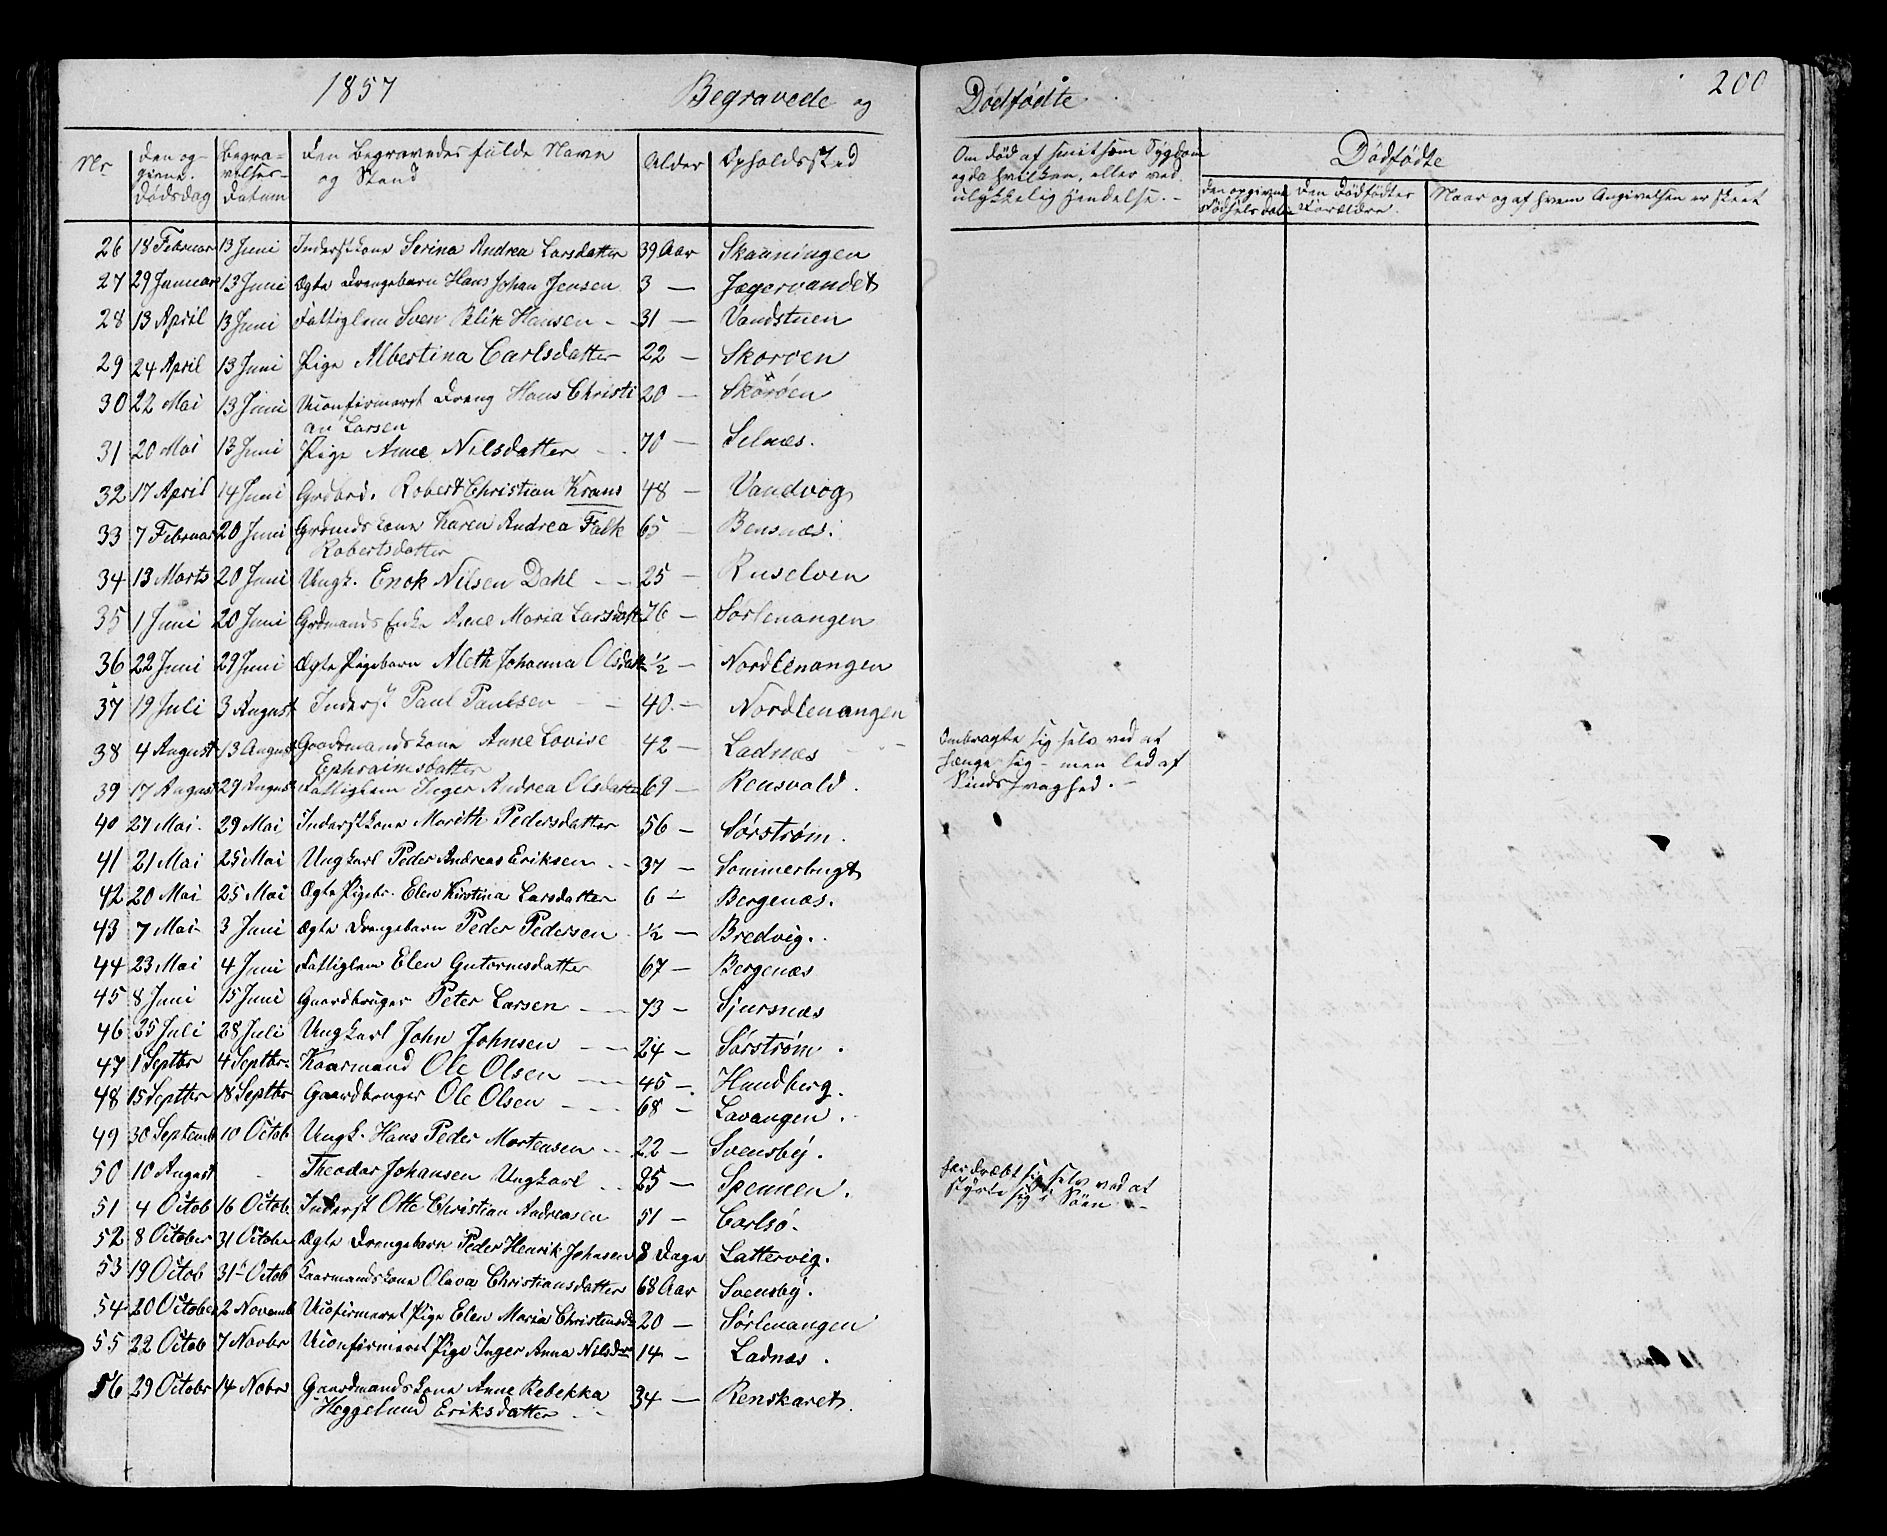 1857 Begravede og Dødfødte 200
Nr
Den op-
givne
Dødsdag
Begra-
velses-
Datum
Den Begravedes fulde Navn
og Stand
Alder
Opholdssted
Om død af smitsom Sygdom
og da hvilken, eller ved
ulykkelig Hendelse. -
Dødfødte
Den opgivne
Fødselsdatum
Den Dødfødtes
Forældre.
Naar og af hvem Angivelsen er skeet
26 18 Februar 13 Juni Inderst kone Serina Andrea Larsdatter 39 Aar Skanningen
27 29 Januar 13 Juni Ægte Drengebarn Hans Johan Jensen 3 — Jægervandet
28 13 April 13 Juni Fattiglem Sven Blik Hansen - 31 — Vandstuen
29 24 April 13 Juni Pige Albertina Carlsdatter 22 — Skorøen
30 22 Mai 13 Juni Uconfirmeret Dreng Hans Christi 20 — Skorøen
an Larsen
31 20 Mai 13 Juni Pige Anne Nilsdatter - 70 — Selnæs.
32 17 April 14 Juni Grdbrd. Robert Christian Krans 48 — Vandvog
33 7 Februar 20 Juni Grdmds kone Karen Andrea Falk 65 — Bensnæs.
Robertsdatter
34 13 Marts 20 Juni Ungk. Enok Nilsen Dahl - - 25 — Ruselven
35 1 Juni 20 Juni Grdmands Enke Ane Maria Larsdatt 76 — Sørlenangen
36 22 Juni 29 Juni Ægte Pigebarn Aleth Johanna Olsdatt ½ — Nordlenangen
37 19 Juli 3 August Inderst Paul Paulsen - - 40. — Nordlenangen
38 4 August 13 August Gaardmandskone Anne Lovise 42 — Ladnæs - Ombragte sig selv ved at
Ephraimsdatter hænge sig - men led af
39 17 August 29 August Fattiglem Inger Andrea Olsdatter 69 — Rensvold. Sindssvaghed. -
40 27 Mai. 29 Mai Inderstkone Marith Pedersdatter 56 — Sørstrøm.
41 21 Mai 25 Mai Ungkarl Peder Andreas Eriksen - - 37 — Sommerbugt
42 20 Mai 25 Mai Ægte Pigebr. Elen Kirstina Larsdatter 6 — Bergenæs.
43 7 Mai 3 Juni Ægte Drengebarn Peder Pedersen ½ — Bredvig.
44 23 Mai 4 Juni Fattiglem Elen Gutormsdatter 67 — Bergenæs
45 8 Juni 15 Juni Gaardbruger Peter Larsen - - 73 — Sjursnæs
46 25 Juli 28 Juli Ungkarl John Johnsen - - 24 — Sørstrøm.
47 1 Septbr 4 Septbr. Kaarmand Ole Olsen - - 45 — Hundberg
48 15 Septbr 18 Septbr Gaardbruger Ole Olsen - - 68 — Lavangen.
49 30 Septemb 10 Octob Ungk. Hans Peder Mortensen - - 22 — Svensby.
50 10 August - Theodor Johansen Ungkarl - 25 — Spennen. har dræbt sig selv ved at
styrte sig i Søen -
51 4 Octob 16 Octob. Inderst Otte Christian Andreasen 51 — Carlsø.
52 8 October 31 October Ægte Drengebarn Peder Henrik Johnsen 8 Dage Lattervig.
53 19 Octob 31 Octob Kaarmandskone Olava Christiansdatter 68 Aar Svensby.
54 20 October 2 Novemb Uconfirmeret Pige Elen Maria Christensd 20 — Sørlenangen
55 22 Octob 7 Novbr Uconfirmeret Pige Inger Anna Nilsdtr 14 — Ladnæs.
56 29 Octobr 14 Nobr Gaardmandskone Anne Rebekka 34 — Renskaret.
Heggelund Eriksdatter - -